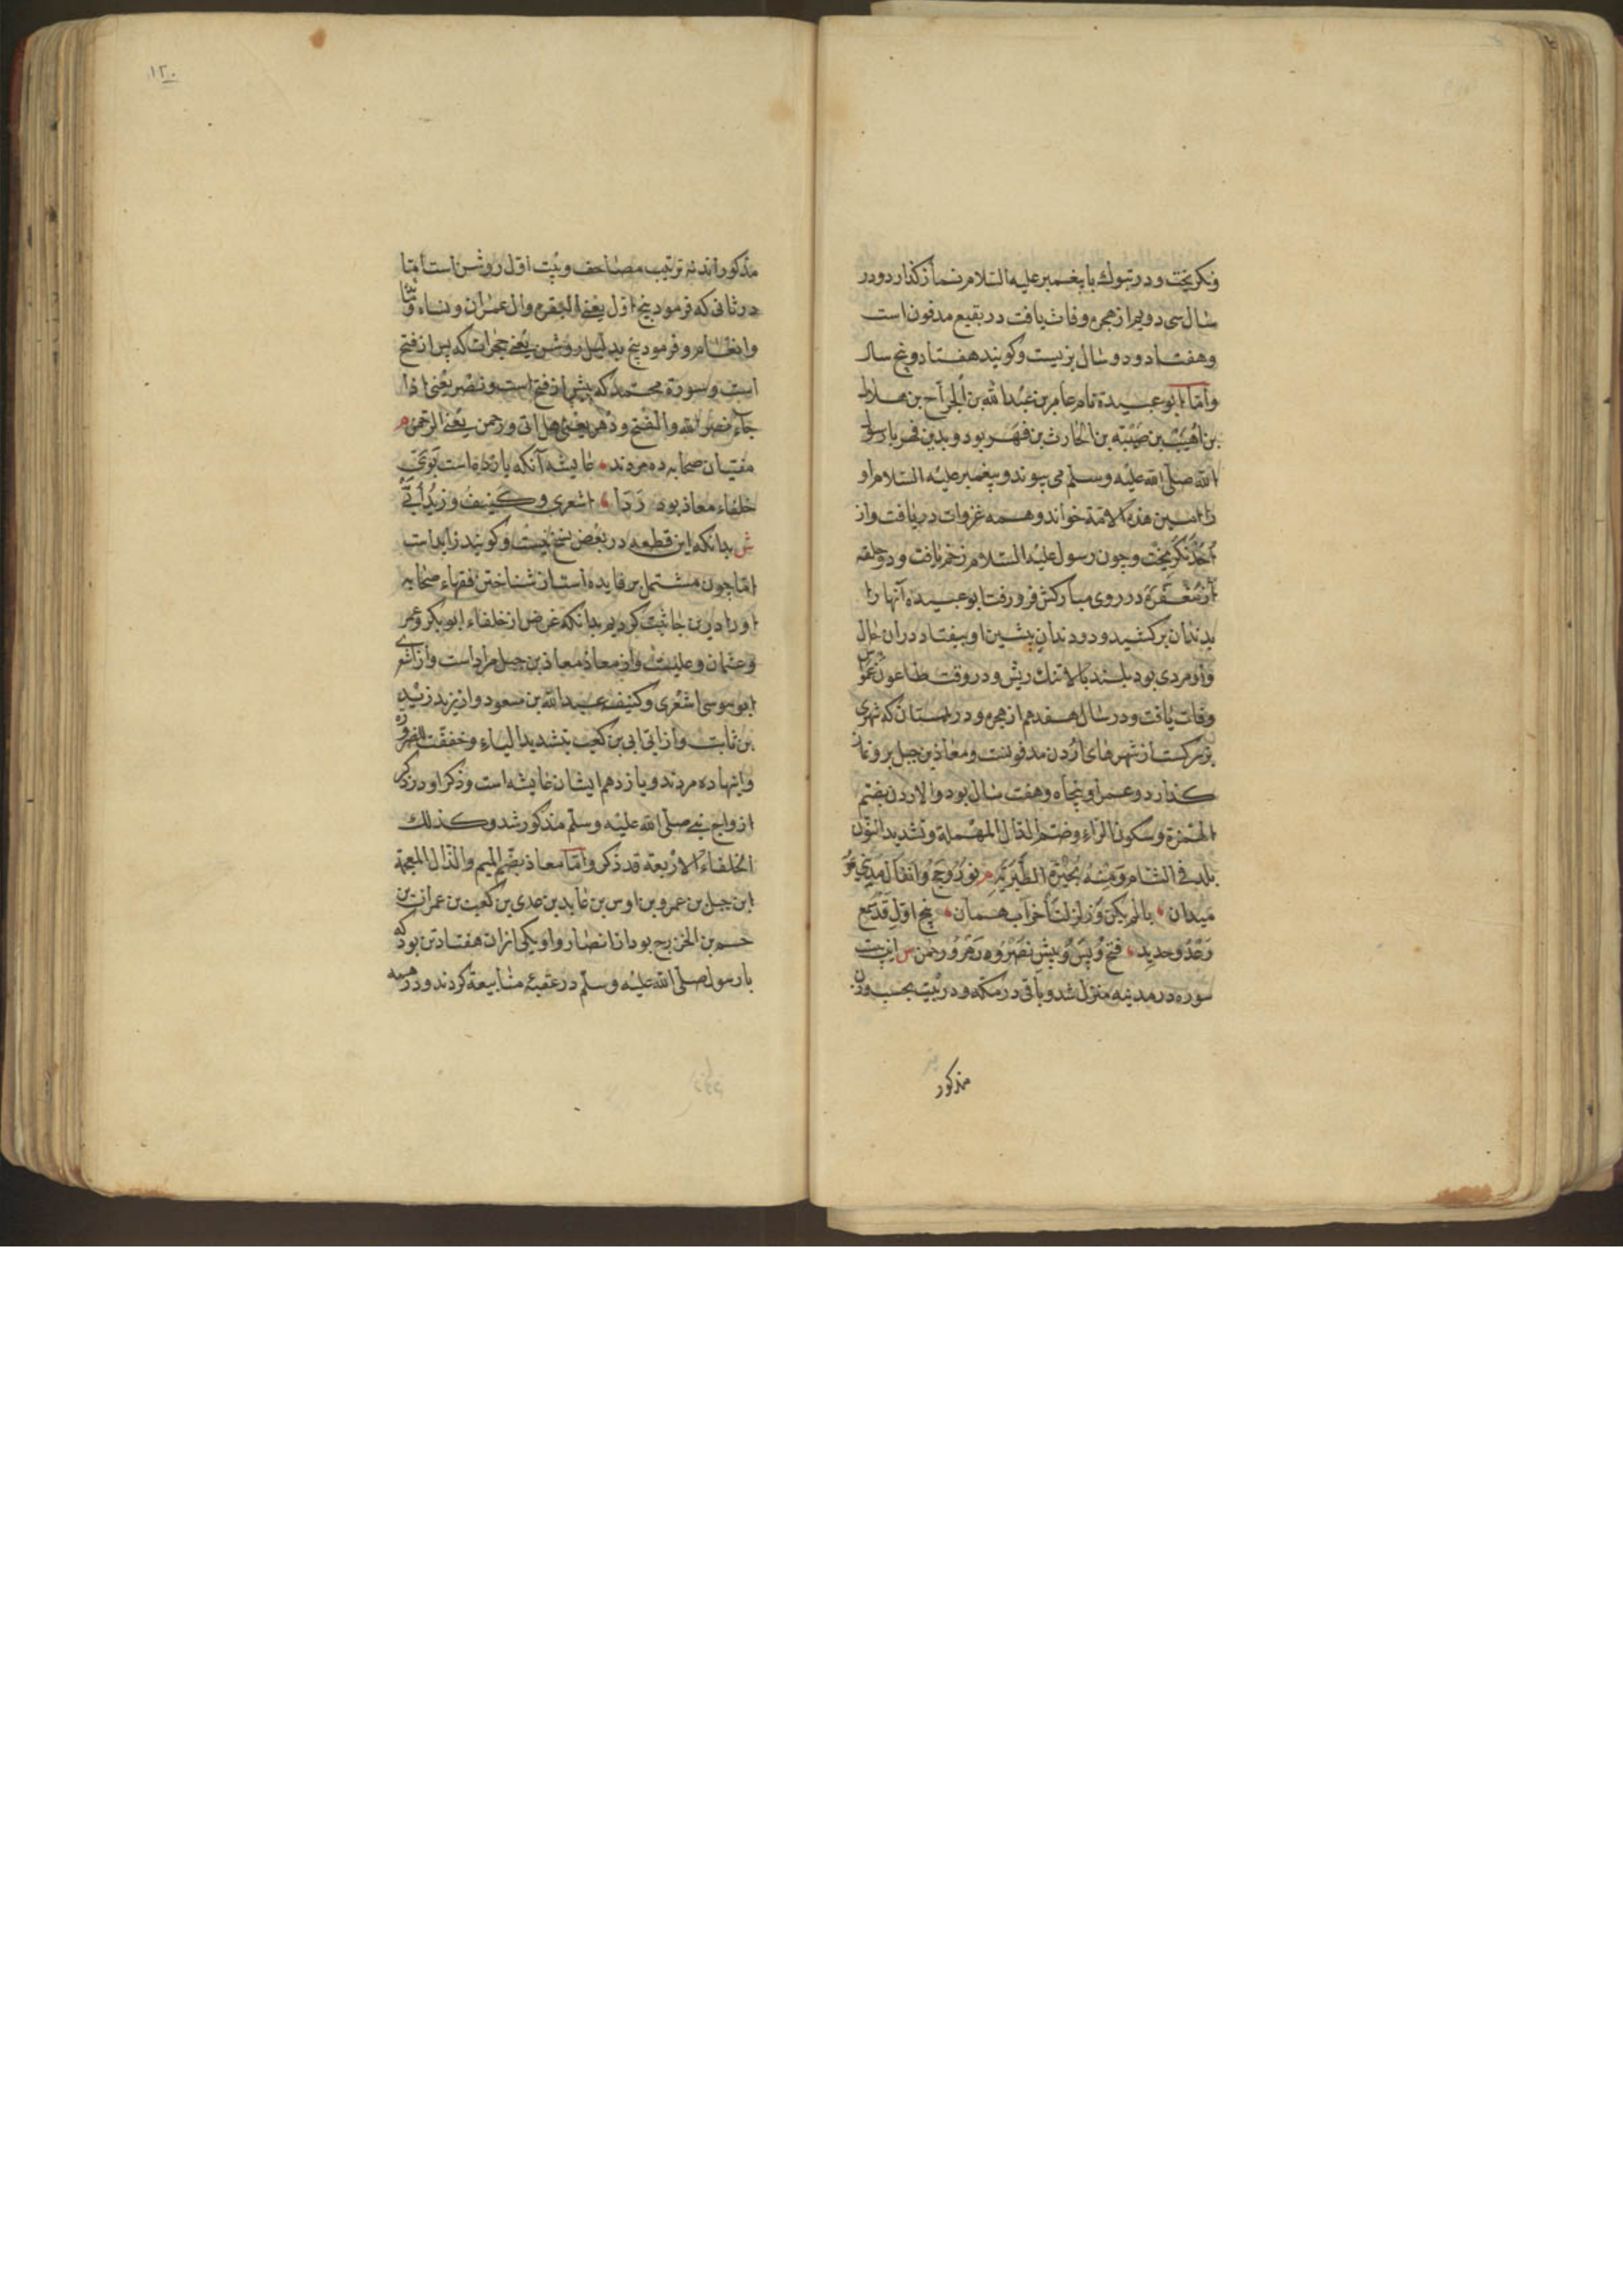 ونکریخت و در تبوک با پیغمبر علیه السلام نماز گذارد و در
سال سی دویم از هجرة وفات یافت در بقیع مدفون است
و هفتاد و دو سال بزیست و کویند هفتاد و پنج سال
و اما ابو عبیدة نام عامر بن عبد الله بن الجراح بن هلال
بن اهیب بن ضبّة بن الحارث بن فهر بود و بدین فهر با رسول
الله صلی الله علیه و سلم می پیوندد و پیغمبر علیه السلام او
را امین هذه الامة خواند و همه غزوات دریافت و از
اُحُد نکریخت و چون رسول علیه السلام زخم یافت و دو حلقه
از مغفره در روی مبارکش فرو رفت ابو عبیده آنها را
بدندان برکشید و دو دندان پیشین او بیفتاد در ان حال
و او مردی بود بلند بالا تنک ریش و در وقت طاعون عمواس
وفات یافت و در سال هفدهم از هجرة و در بیسان که شهری
کست از شهرهای اردن مدفونست و معاذ بن جبل برو نماز
کذارد و عمر او پنجاه و هفت سال بود و الاردن بضم
الهمزة و سکون الراء و ضم الدال المهملة و تشدید النون
بلد فی الشام و منه بحیرة الطبریة م نور و حج و انفال مدنی
میدان ٭ با لم یکن و زلزلت احزاب همان ٭ پنج اول قد سمع
رعد و حدید ٭ فتح و پس و پیش نصر و دهر و رحمن س این بیست
سوره در مدینه منزل شد و باقی در مکه و در بیت بحسب وزن
مذکور
۱۲۰
مذکوراند نه ترتیب مصاحف و بیت اول روشن است اما
در ثانی که فرمود پنج اول یعنی البقرة و ال عمران و نساء و مائدة
و انعام و فرمود پنج بدلیل روشن یعنی حجرات که پس از فتح
است و سورة محمد که پیش از فتح است و نصر یعنی اذا
جاء نصر الله و الفتح و دهر یعنی هل اتی و رحمن یعنی الرحمن م
مفتیان صحابه ده مردند ٭ عایشه آنکه یازده است
خلفاء معاذ بود ٭ اشعری و کنیف و زید اُبَیّ
ش بدانکه این قطعه در بعض نسخ نیست و کویند زاید است
اما چون مشتمل بر فایده است از شناختن فقهاء صحابه
او را درین جا ثبت کردیم بدانکه غرض از خلفاء ابو بکر و عمر
و عثمان و علیست و از معاذ معاذ بن جبل مراد است و از اشعری
ابو موسی اشعری و کنیف عبد الله بن مسعود و از زید زید
بن ثابت و از ابی ابی بن کعب بتشدید الیاء و خففت للضرورة
و اینها ده مردند و یازدهم ایشان عایشه است و ذکر او در ذکر
ازواج نبی صلی الله علیه و سلم مذکور شد و کذلک
الخلفاء الاربعة قد ذکر و اما معاذ بضم المیم و الذال المعجمة
ابن جبل بن عمرو بن اوس بن عاید بن عدی بن کعب بن عمران بن
جسم بن الخزرج بود از انصار و او یکی از ان هفتاد تن بود که
با رسول صلی الله علیه و سلم در عقبه متابیعة کردند و در همه